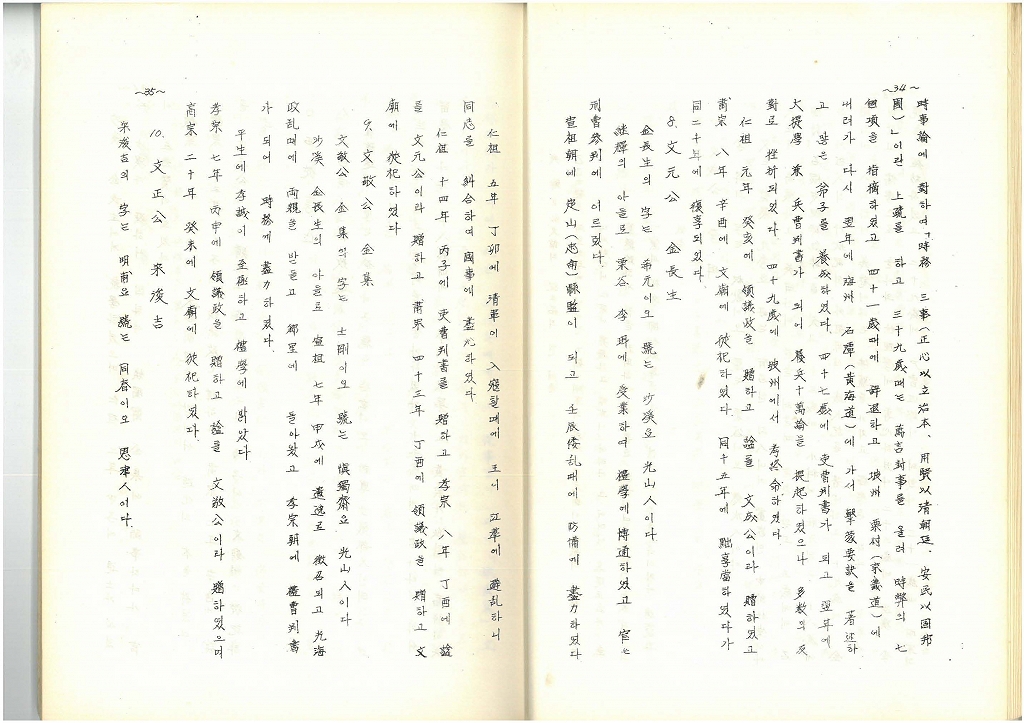 ~34~
時事論에 對하여「時務 三事(正心以立治本、用賢以淸朝廷、安民以固邦
國)」이란 上疏를 하고 三十九歲때는 萬言封事를 올려 時弊의 七
個項을 指摘하였고 四十一歲때에 辭退하고 坡州 栗村(京畿道)에
내려가 다시 翌年에 海州 石潭(黃海道)에 가서 擊蒙要訣을 著述하
고 많은 弟子를 養成하였다. 四十七歲에 吏曹判書가 되고 翌年에
大提學 兼 兵曹判書가 되어 養兵十萬論을 提起하였으나 多數의 反
對로 挫折되었다. 四十九歲에 坡州에서 考終命하였다
仁祖 元年 癸亥에 領議政을 贈하고 諡를 文成公이라 贈하였고
肅宗 八年 辛酉에 文廟에 從祀하였다. 同十五年에 黜享當하였다가
同二十年에 復享되었다.
8. 文元公 金長生
金長生의 字는 希元이오 號는 沙溪요 光山人이다
繼輝의 아들로 栗谷 李珥에 受業하여 禮學에 博通하였고 官은
刑曹參判에 이르렀다.
宣祖朝에 定山(忠南)縣監이 되고 壬辰倭乱때에 防備에 盡力하였다
~35~
仁祖 五年 丁卯에 淸軍이 入寇할때에 王이 江華에 避乱하니
同志를 糾合하여 國事에 盡力하였다
仁祖 十四年 丙子에 吏曹判書를 贈하고 孝宗 八年 丁酉에 諡
를 文元公이라 贈하고 肅宗 四十三年 丁酉에 領議政을 贈하고 文
廟에 從祀하였다
9. 文敬公 金集
文敬公 金集의 字는 士剛이오 號는 愼獨齋요 光山人이다
沙溪 金長生의 아들로 宣祖 七年 甲戌에 遺逸로 徵召되고 光海
政乱때에 両親을 받들고 鄕里에 돌아왔고 孝宗朝에 禮曹判書
가 되어 時務에 盡力하였다.
平生에 孝誠이 至極하고 禮學에 밝았다
孝宗 七年 丙申에 領議政을 贈하고 諡를 文敬公이라 贈하였으며
高宗 二十年 癸未에 文廟에 從祀하였다.
10. 文正公 宋浚吉
宋浚吉의 字는 明甫요 號는 同春이오 恩津人이다.